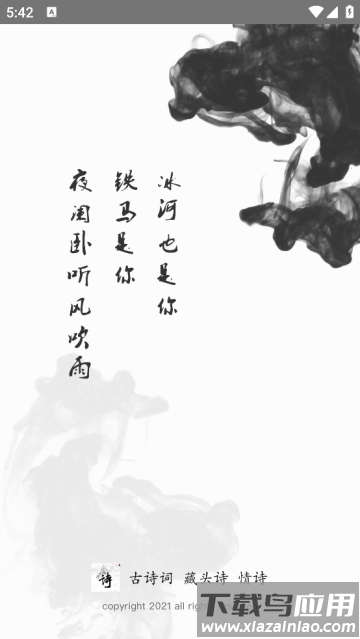 5:42 A
夜阑卧听风吹雨
铁马是你
冰河也是你
诗 古诗词 藏头诗 情诗
copyright 2021 all righ
下载鸟应用
www.xiazainiao.com